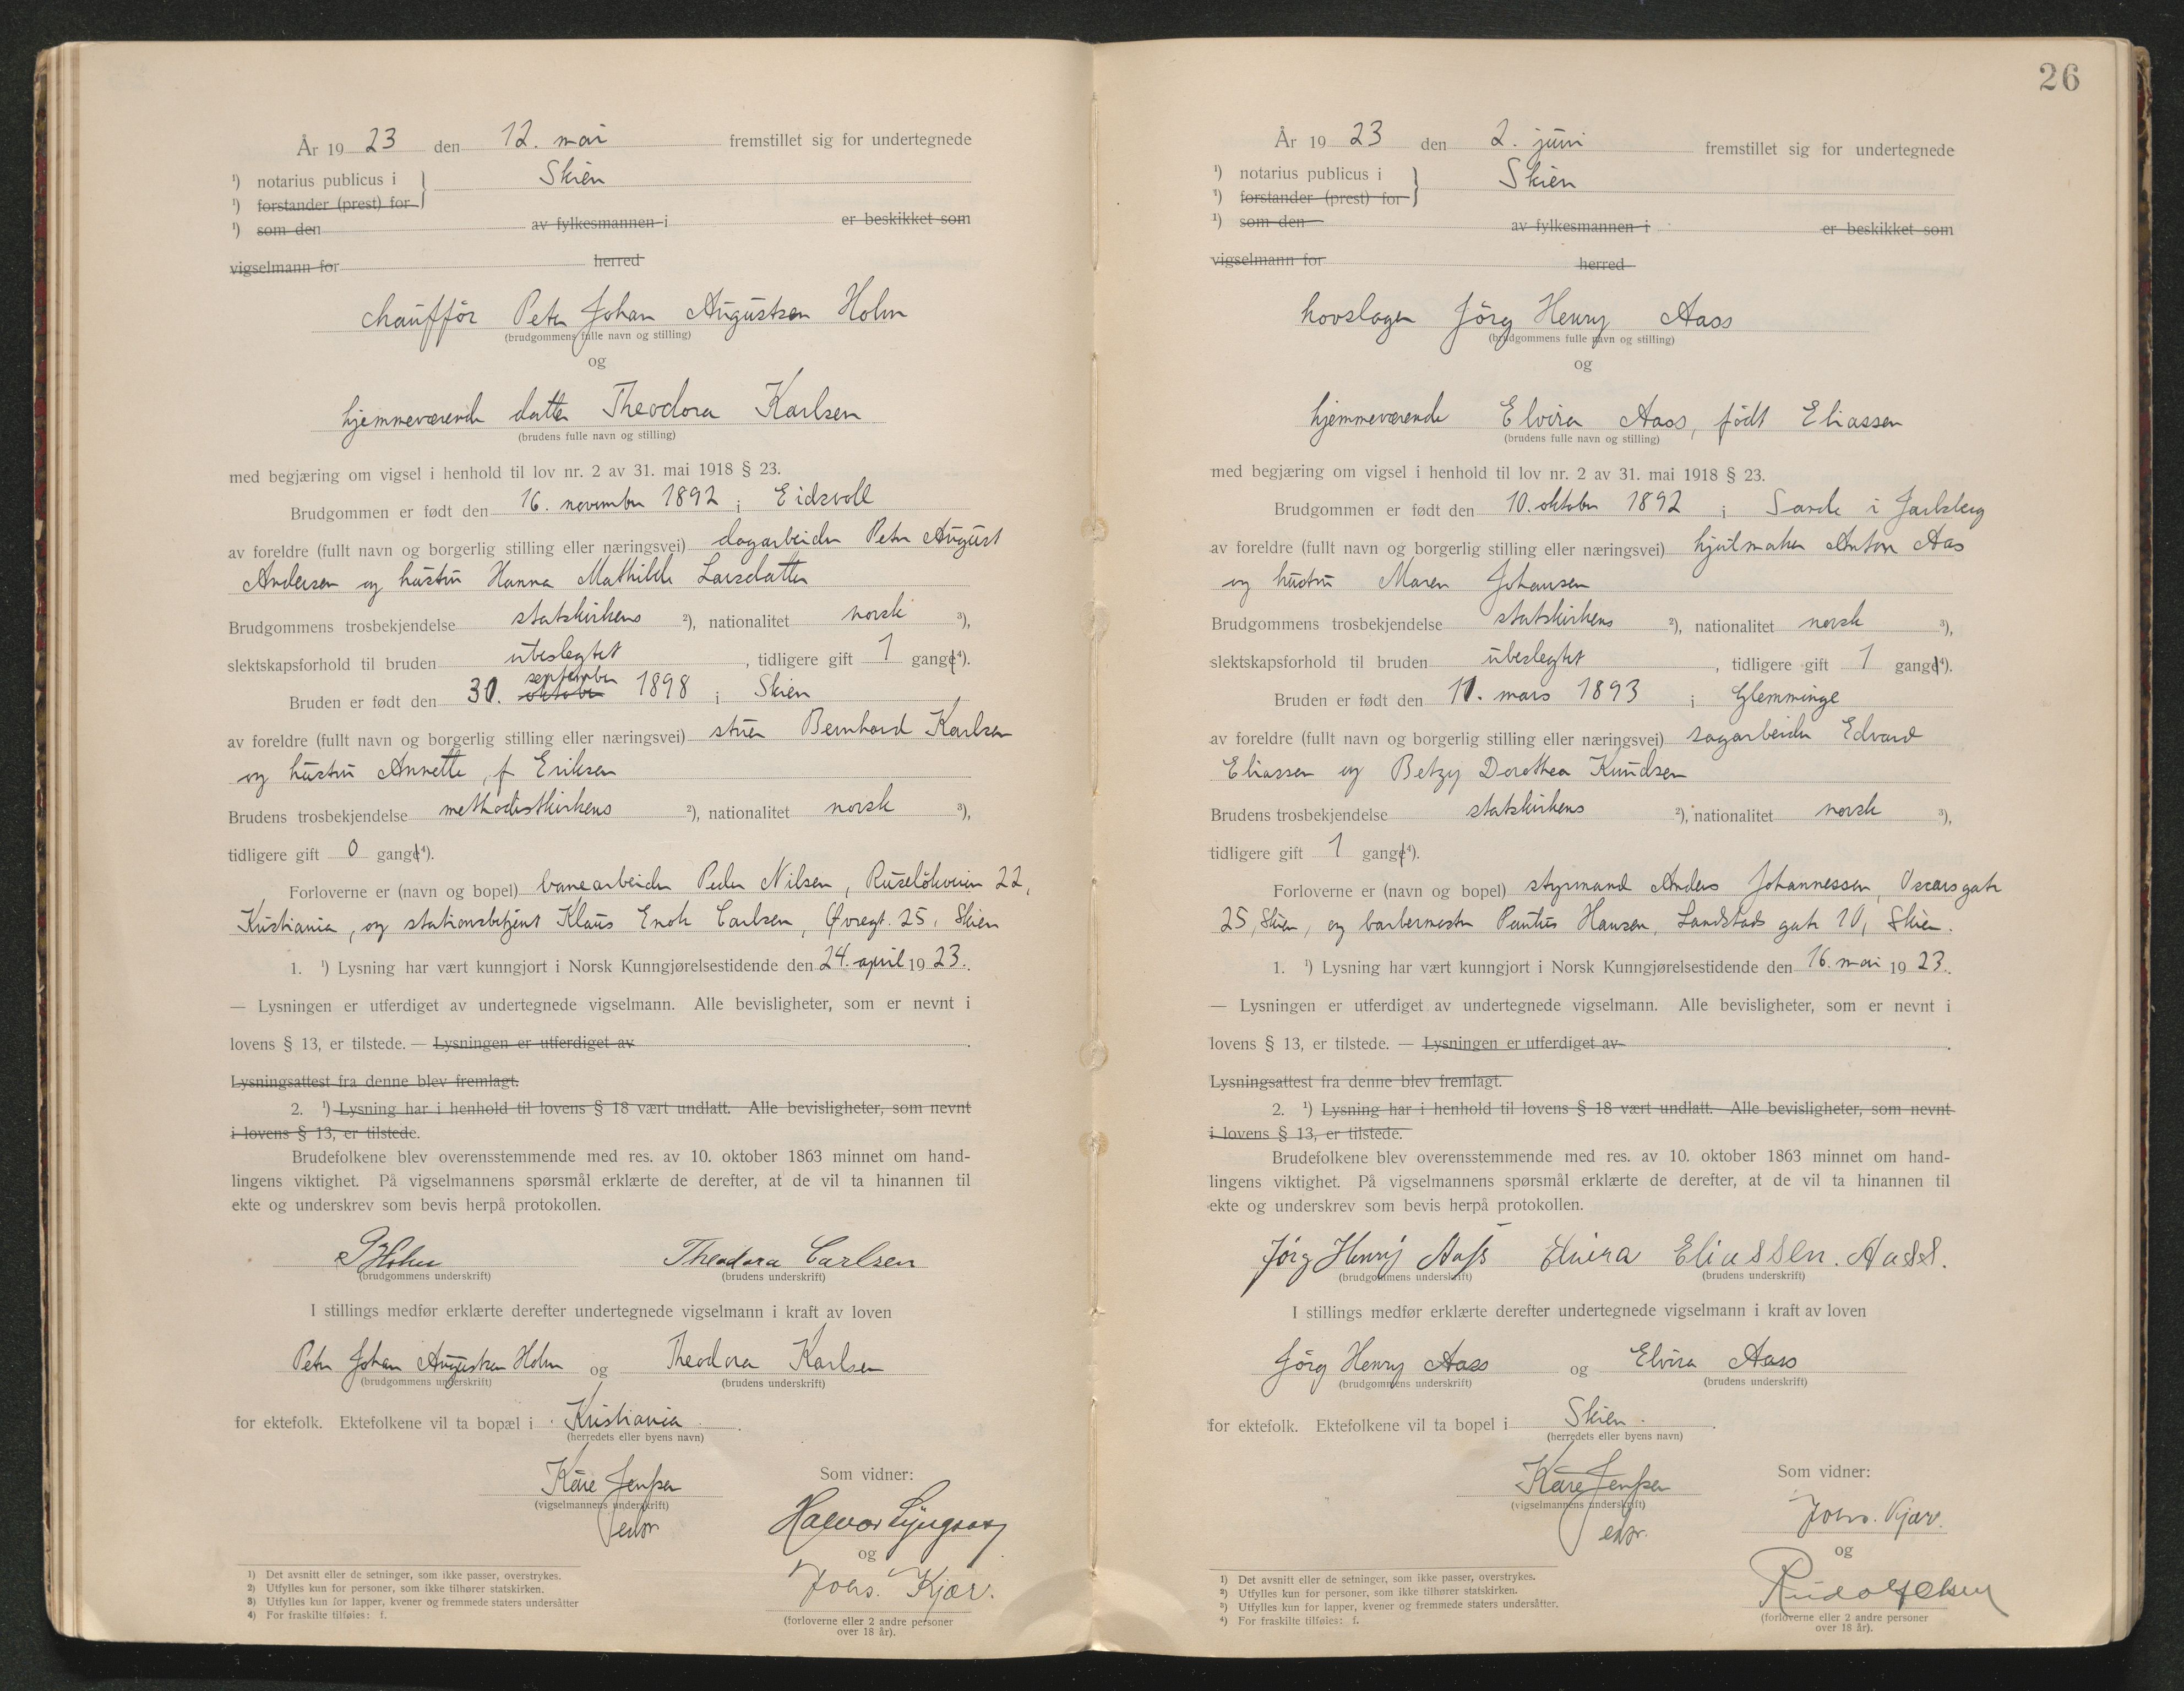 År 1923 den 12. mai fremstillet sig for undertegnede
¹) notarius publicus i } Skien
¹) forstander (prest) for
¹) som den av fylkesmannen i er beskikket som
vigselmann for herred
chaufför Peter Johan Augustsen Holm
(brudgommens fulle navn og stilling)
og
hjemmeværende datter Theodora Karlsen
(brudens fulle navn og stilling)
med begjæring om vigsel i henhold til lov nr. 2 av 31. mai 1918 § 23.
Brudgommen er født den 16. november 1892 i Eidsvoll
av foreldre (fullt navn og borgerlig stilling eller næringsvei) dagarbeider Peter August
Andersen og hustru Hanna Mathilde Larsdatter
Brudgommens trosbekjendelse statskirkens ²), nationalitet norsk ³),
slektskapsforhold til bruden ubeslegtet, tidligere gift 1 gange⁴).
september
Bruden er født den 30. oktober 1898 i Skien
av foreldre (fullt navn og borgerlig stilling eller næringsvei) stuer Bernhard Karlsen
og hustru Annette, f. Eriksen
Brudens trosbekjendelse methodistkirkens ²), nationalitet norsk ³),
tidligere gift 0 gange⁴).
Forloverne er (navn og bopel) banearbeider Peder Nilsen, Ruseløkveien 22,
Kristiania, og stationsbetjent Klaus Enok Carlsen, Øvregt. 25, Skien
1. ¹) Lysning har vært kunngjort i Norsk Kunngjørelsestidende den 24. april 1923.
— Lysningen er utferdiget av undertegnede vigselmann. Alle bevisligheter, som er nevnt i
lovens § 13, er tilstede. — Lysningen er utferdiget av .
Lysningsattest fra denne blev fremlagt.
2. ¹) Lysning har i henhold til lovens § 18 vært undlatt. Alle bevisligheter, som nevnt
i lovens § 13, er tilstede.
Brudefolkene blev overensstemmende med res. av 10. oktober 1863 minnet om hand-
lingens viktighet. På vigselmannens spørsmål erklærte de derefter, at de vil ta hinannen til
ekte og underskrev som bevis herpå protokollen.
P Holm Theodora Carlsen
(brudgommens underskrift) (brudens underskrift)
I stillings medfør erklærte derefter undertegnede vigselmann i kraft av loven
Peter Johan Augustsen Holm og Theodora Karlsen
(brudgommens underskrift) (brudens underskrift)
for ektefolk. Ektefolkene vil ta bopæl i Kristiania.
(herredets eller byens navn)
Kåre Jenssen Som vidner:
(vigselmannens underskrift)
edsv. Halvor
og
Johs. Kjær.
(forloverne eller 2 andre personer
over 18 år).
1) Det avsnitt eller de setninger, som ikke passer, overstrykes.
2) Utfylles kun for personer, som ikke tilhører statskirken.
3) Utfylles kun for lapper, kvener og fremmede staters undersåtter
4) For fraskilte tilføies: f.
26
År 1923 den 2. juni fremstillet sig for undertegnede
¹) notarius publicus i } Skien
¹) forstander (prest) for
¹) som den av fylkesmannen i er beskikket som
vigselmann for herred
hovslager Jörg Henry Aass
(brudgommens fulle navn og stilling)
og
hjemmeværende Elvira Aass, født Eliassen
(brudens fulle navn og stilling)
med begjæring om vigsel i henhold til lov nr. 2 av 31. mai 1918 § 23.
Brudgommen er født den 10. oktober 1892 i Sande i Jarlsberg
av foreldre (fullt navn og borgerlig stilling eller næringsvei) hjulmaker Anton Aas
og hustru Maren Johansen
Brudgommens trosbekjendelse statskirkens ²), nationalitet norsk ³),
slektskapsforhold til bruden ubeslegtet, tidligere gift 1 gange⁴).
Bruden er født den 11. mars 1893 i Glemminge
av foreldre (fullt navn og borgerlig stilling eller næringsvei) sagarbeider Edvard
Eliassen og Betzy Dorothea Knudsen
Brudens trosbekjendelse statskirkens ²), nationalitet norsk ³),
tidligere gift 1 gange⁴).
Forloverne er (navn og bopel) styrmand Anders Johannessen, Oscarsgate
25, Skien, og barbermester Hansen, Landstads gate 10, Skien.
1. ¹) Lysning har vært kunngjort i Norsk Kunngjørelsestidende den 16. mai 1923.
— Lysningen er utferdiget av undertegnede vigselmann. Alle bevisligheter, som er nevnt i
lovens § 13, er tilstede. — Lysningen er utferdiget av .
Lysningsattest fra denne blev fremlagt.
2. ¹) Lysning har i henhold til lovens § 18 vært undlatt. Alle bevisligheter, som nevnt
i lovens § 13, er tilstede.
Brudefolkene blev overensstemmende med res. av 10. oktober 1863 minnet om hand-
lingens viktighet. På vigselmannens spørsmål erklærte de derefter, at de vil ta hinannen til
ekte og underskrev som bevis herpå protokollen.
Jörg Henry Aass Elvira Eliassen. Aass.
(brudgommens underskrift) (brudens underskrift)
I stillings medfør erklærte derefter undertegnede vigselmann i kraft av loven
Jörg Henry Aass og Elvira Aass
(brudgommens underskrift) (brudens underskrift)
for ektefolk. Ektefolkene vil ta bopel i Skien.
(herredets eller byens navn)
Kåre Jenssen Som vidner:
(vigselmannens underskrift)
edsv. Johs. Kjær.
og
(forloverne eller 2 andre personer
over 18 år).
1) Det avsnitt eller de setninger, som ikke passer, overstrykes.
2) Utfylles kun for personer, som ikke tilhører statskirken.
3) Utfylles kun for lapper, kvener og fremmede staters undersåtter.
4) For fraskilte tilføies: f.